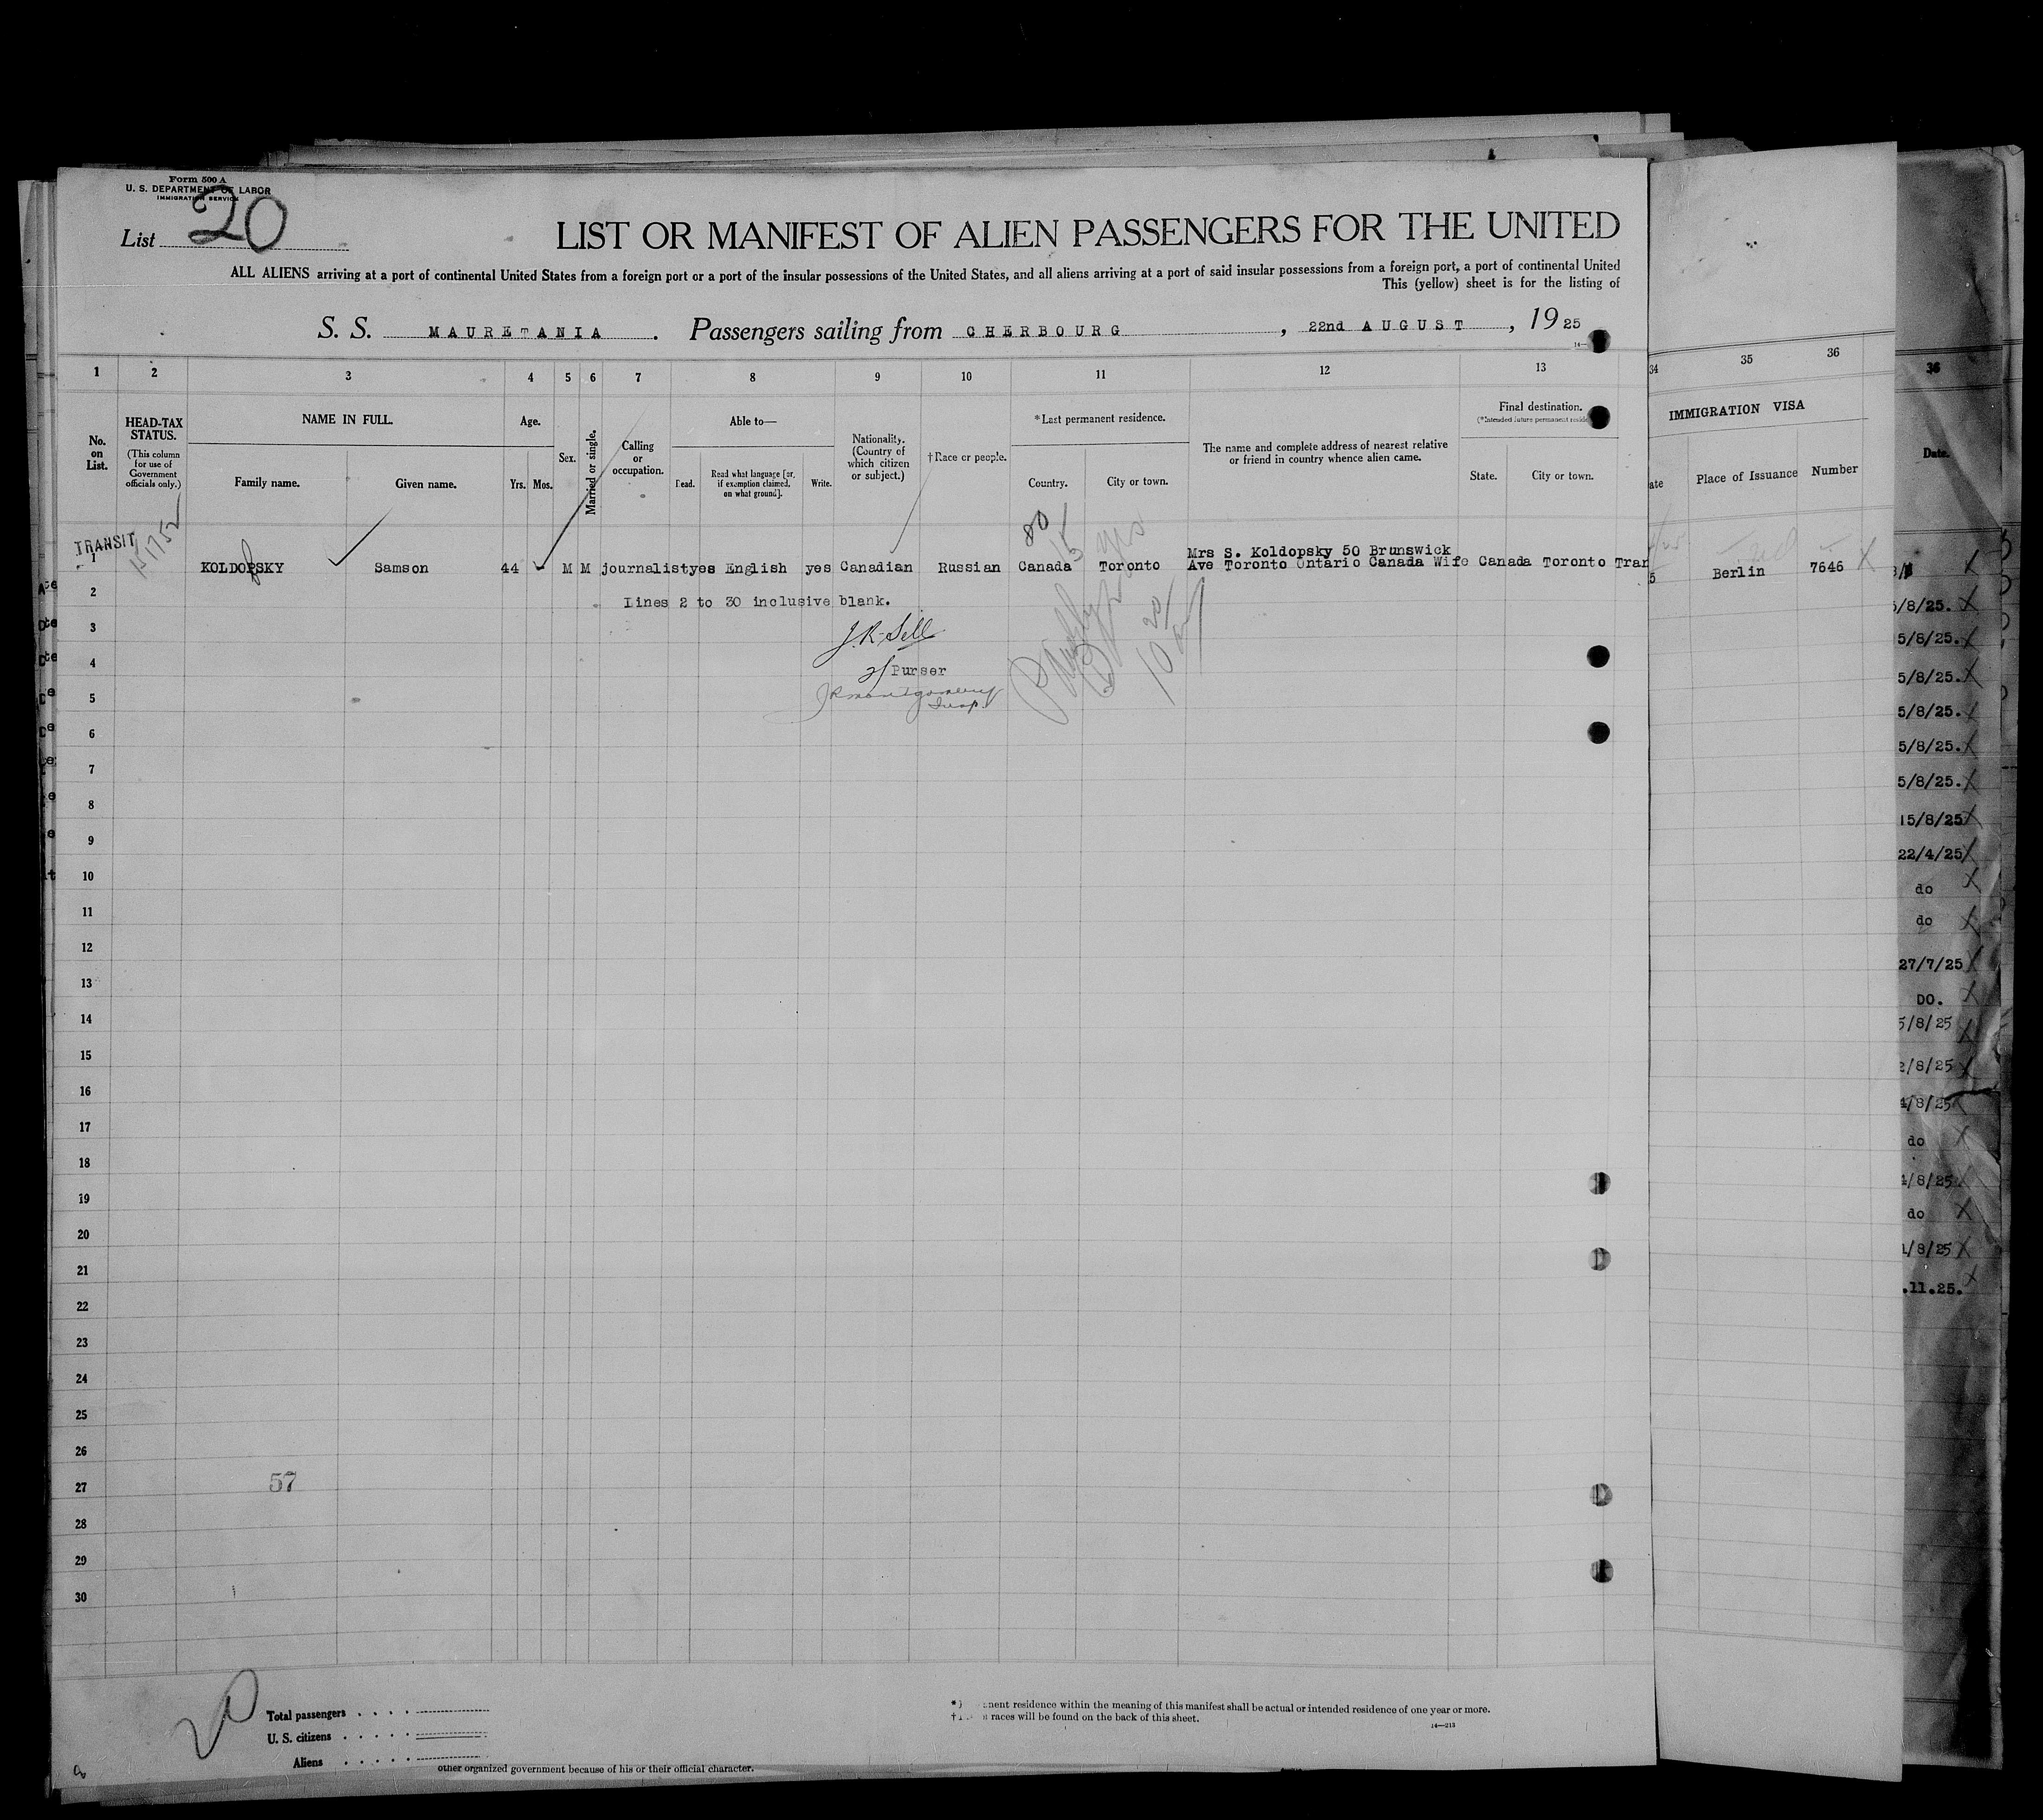 Form 500 A
U. S. DEPARTMENT OF LABOR
IMMIGRATION SERVICE
List 20
LIST OR MANIFEST OF ALIEN PASSENGERS FOR THE UNITED
ALL ALIENS arriving at a port of continental United States from a foreign port or a port of the insular possessions of the United States, and all aliens arriving at a port of said insular possessions from a foreign port, a port of continental United
This (yellow) sheet is for the listing of
S. S. MAURETANIA. Passengers sailing from CHERBOURG, 22nd AUGUST, 1925
1 2 3 4 5 6 7 8 9 10 11 12 13 34 35 36 36
No. on List.
HEAD-TAX STATUS.
(This column for use of Government officials only.)
NAME IN FULL.
Family name.
Given name.
Age.
Yrs. Mos.
Sex.
Married or single.
Calling or occupation.
Able to—
Read.
Read what language [or, if exemption claimed, on what ground].
Write.
Nationality. (Country of which citizen or subject.)
†Race or people.
*Last permanent residence.
Country.
City or town.
The name and complete address of nearest relative or friend in country whence alien came.
Final destination.
(*Intended future permanent
State.
City or town.
IMMIGRATION VISA
ate
Place of Issuance
Number
Date.
TRANSIT
80
15 yrs
1 KOLDOFSKY Samson 44 - M M journalist yes English yes Canadian Russian Canada Toronto Mrs S. Koldopsky 50 Brunswick
Ave Toronto Ontario Canada Wife Canada Toronto Tran
5 Berlin 7646 X
2 Lines 2 to 30 inclusive blank.
3 J.R. Sell
4 Purser
5 J R Montgomery
Insp.
6
7
8
9
10
11
12
13
14
15
16
17
18
19
20
21
22
23
24
25
26
27
57
28
29
30
5/8/25. X
5/8/25. X
5/8/25. X
5/8/25. X
5/8/25. X
5/8/25. X
15/8/25 X
22/4/25 X
do X
do X
27/7/25 X
DO. X
5/8/25 X
2/8/25 X
4/8/25 X
do X
4/8/25 X
do X
1/8/25 X
.11.25. X
20
Total passengers
U. S. citizens
Aliens
nent residence within the meaning of this manifest shall be actual or intended residence of one year or more.
races will be found on the back of this sheet.
14—213
other organized government because of his or their official character.